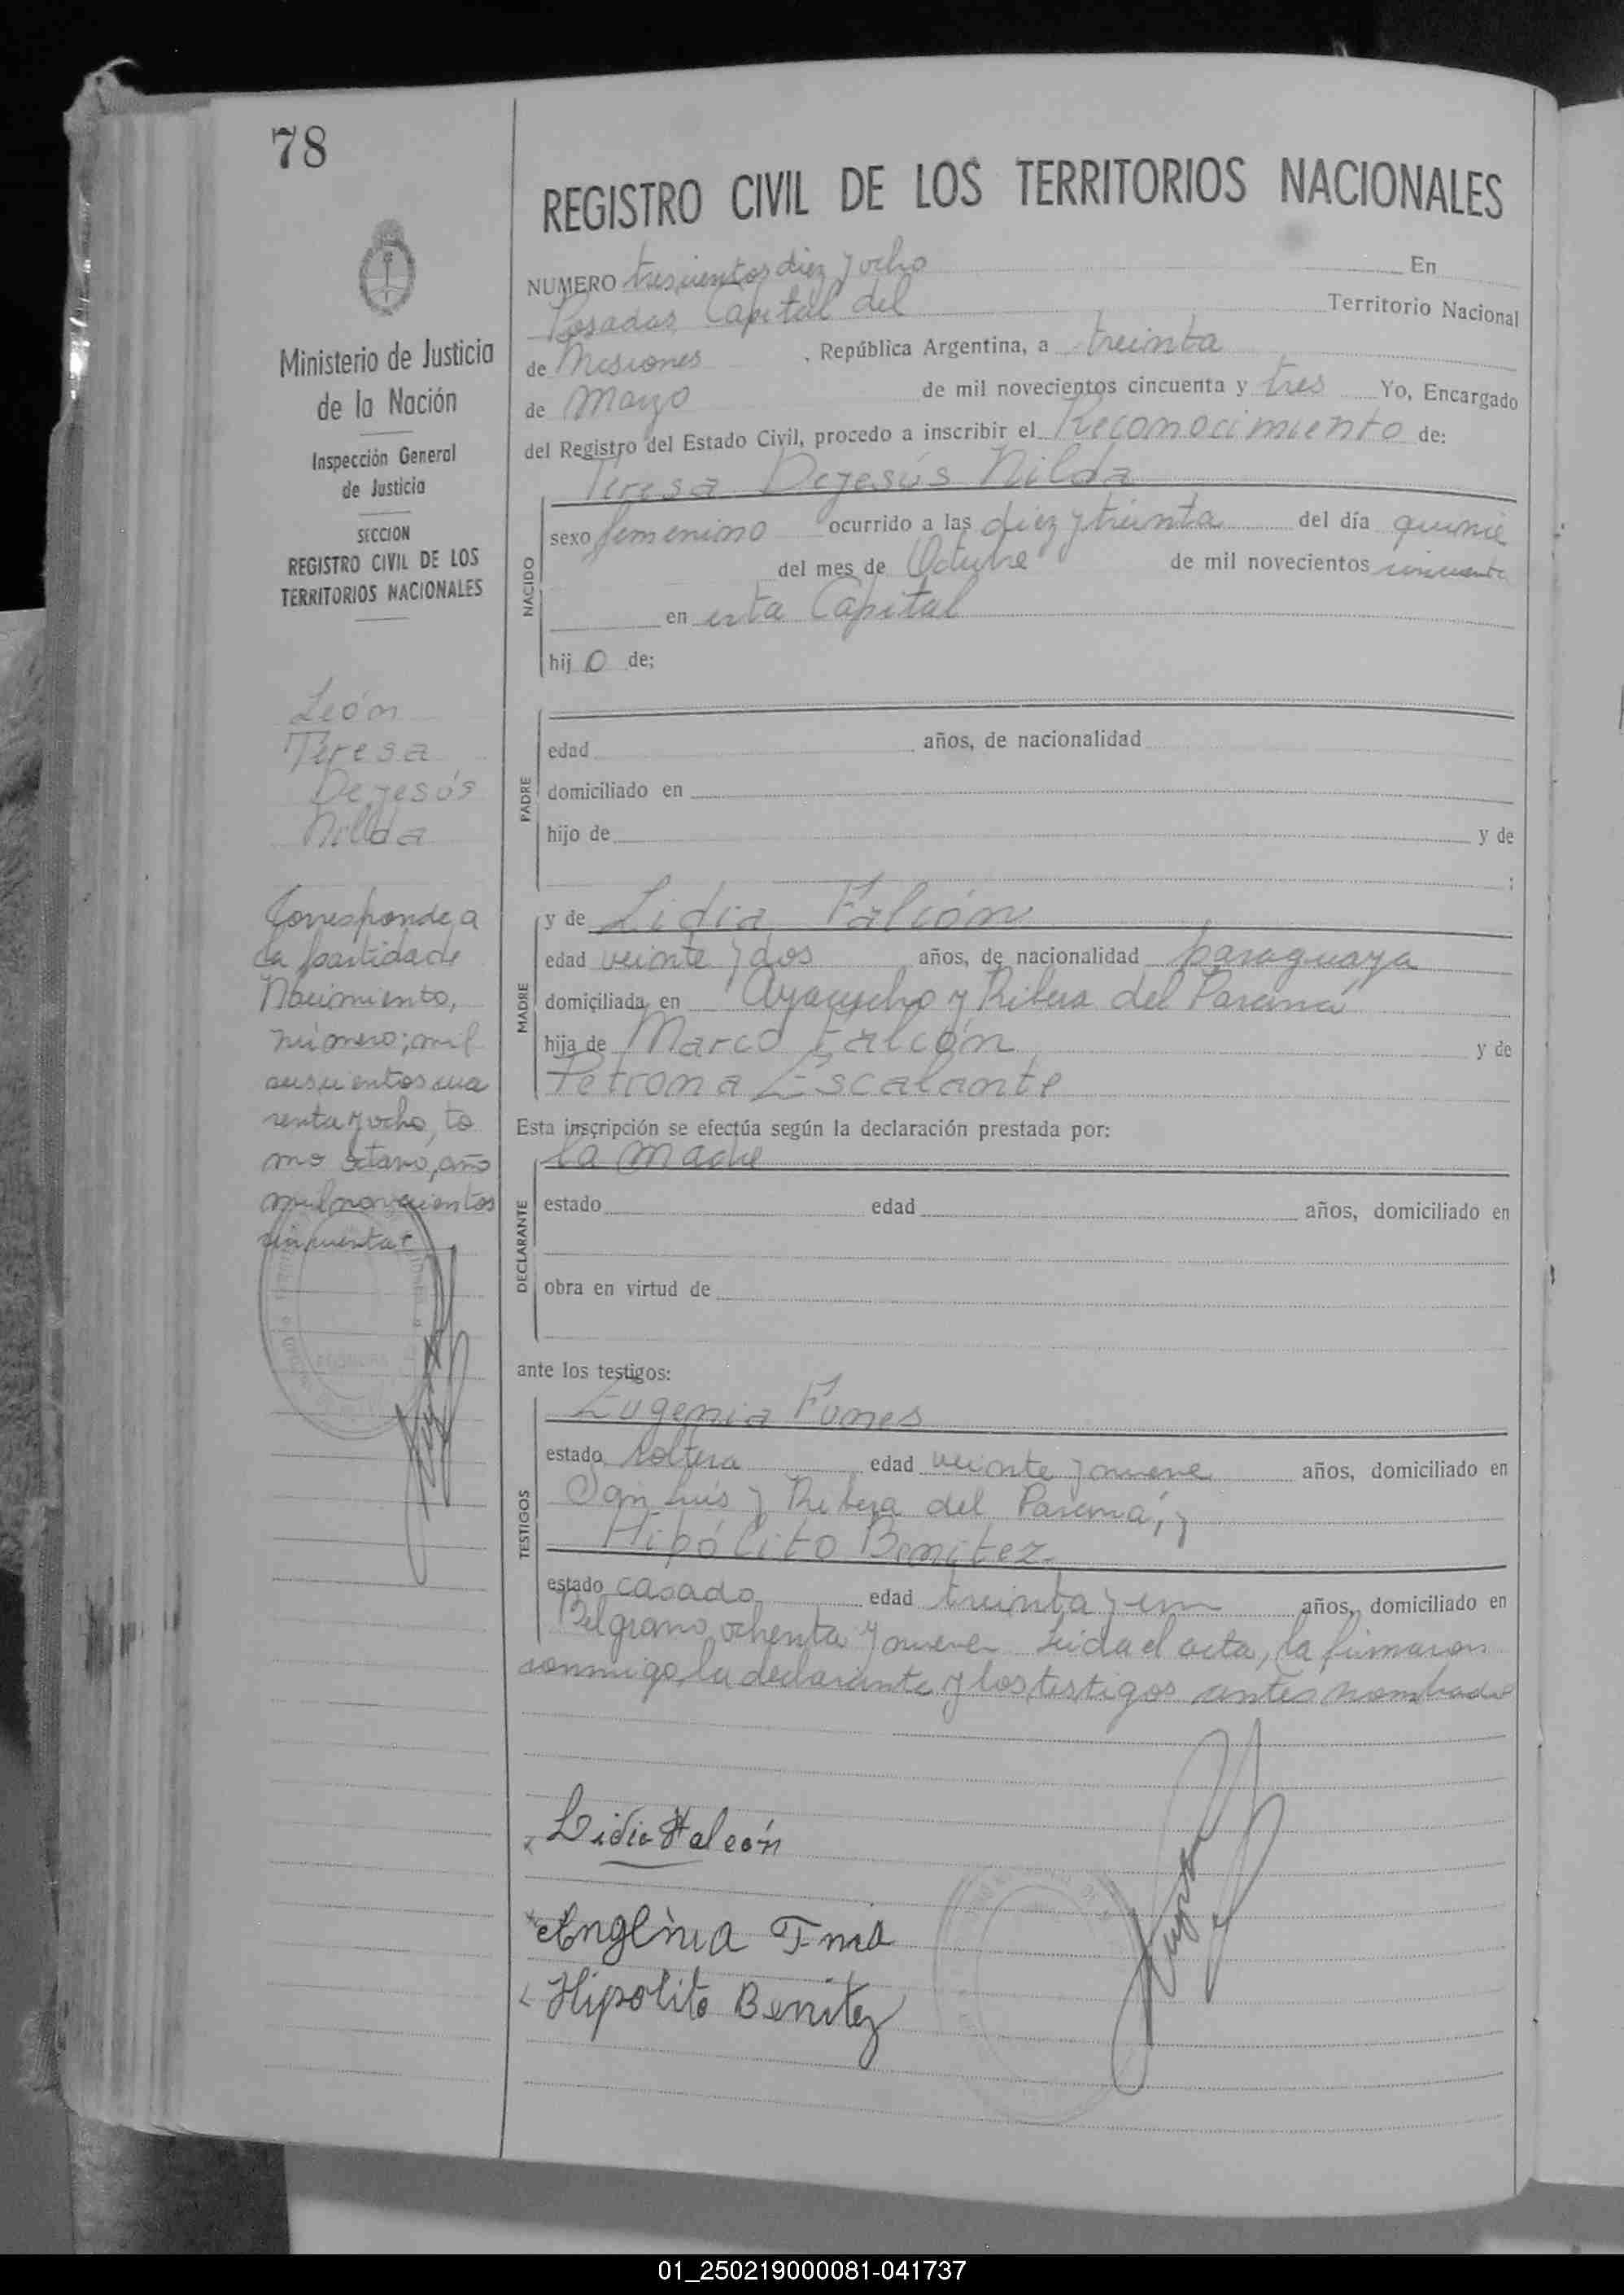 78
REGISTRO CIVIL DE LOS TERRITORIOS NACIONALES
NUMERO trescientos diez y ocho En
Posadas Capital del Territorio Nacional
de Misiones, República Argentina, a treinta
de Marzo de mil novecientos cincuenta y tres Yo, Encargado
del Registro del Estado Civil, procedo a inscribir el Reconocimiento de:
Teresa Dejesús Nilda
NACIDO
sexo femenino ocurrido a las diez y treinta del día quince
del mes de Octubre de mil novecientos cincuenta
en esta Capital
hij o de;
PADRE
edad años, de nacionalidad
domiciliado en
hijo de y de
;
MADRE
y de Lidia Falcón
edad veinte y dos años, de nacionalidad paraguaya
domiciliada en Ayacucho y Ribera del Paraná
hija de Marco Falcón y de
Petrona Escalante
Esta inscripción se efectúa según la declaración prestada por:
la madre
DECLARANTE
estado edad años, domiciliado en
obra en virtud de
ante los testigos:
TESTIGOS
Eugenia Funes
estado soltera edad veinte y nueve años, domiciliado en
San Luis y Ribera del Paraná, y
Hipólito Benitez
estado casado edad treinta y un años, domiciliado en
Belgrano ochenta y nueve Leida el acta, la firmaron
conmigo, la declarante y los testigos antes nombrados
Lidia Falcón
Hipolito Benitez
Ministerio de Justicia
de la Nación
Inspección General
de Justicia
SECCION
REGISTRO CIVIL DE LOS
TERRITORIOS NACIONALES
León
Teresa
Dejesús
Nilda
Corresponde a
la partida de
Nacimiento,
número; mil
seiscientos cua
renta y ocho, to
mo octavo, año
mil novecientos
cincuenta
01_250219000081-041737